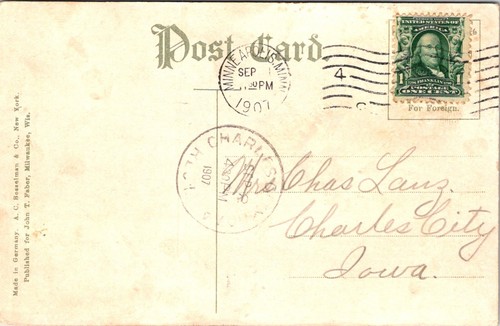 Post Card.
MINNEAPOLIS, MINN.
SEP
PM
1907
4
UNITED STATES OF AMERICA
1 1
POSTAGE
ONE CENT
For Foreign.
CHARLES
1907
Mrs Chas Lanz.
Charles City
Iowa.
Made in Germany. A. C. Bosselman & Co., New York.
Published for John T. Faber, Milwaukee, Wis.